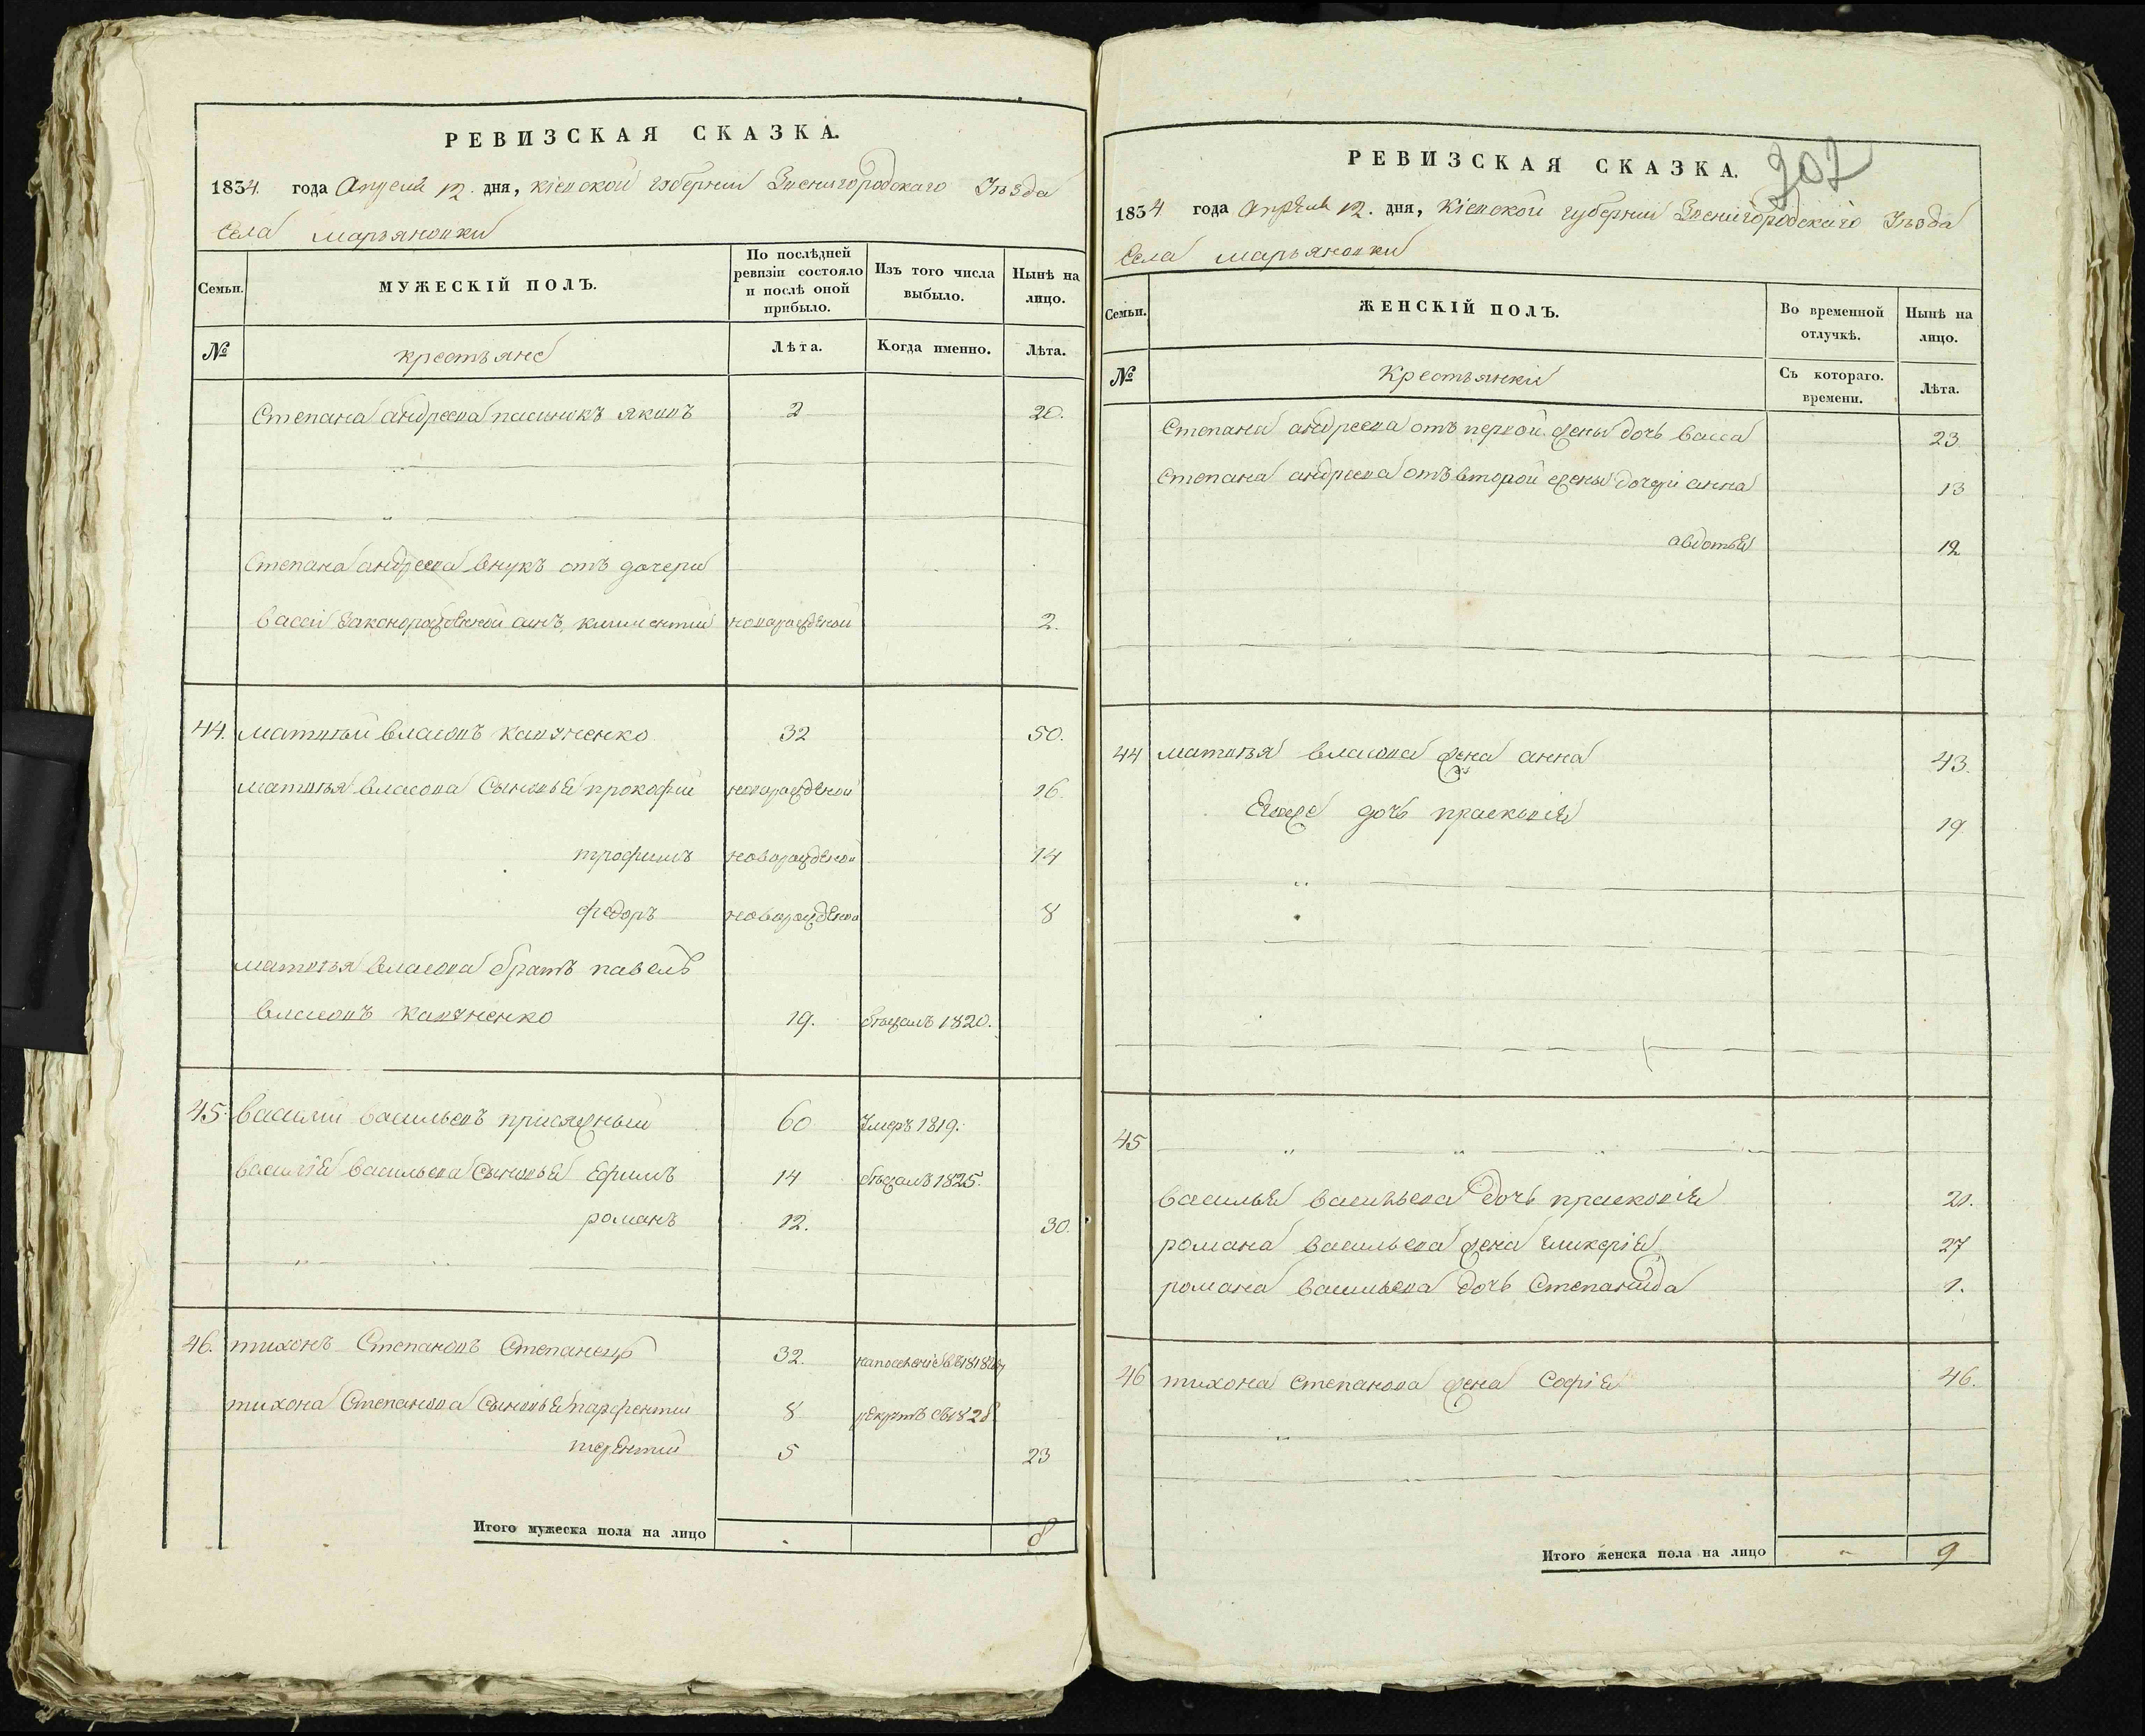 РЕВИЗСКАЯ СКАЗКА.
1834. года Апреля 12. дня, кіевской губерніи Звенигородскаго Уѣзда
Села марьяновки
Семьи.
МУЖЕСКІЙ ПОЛЪ.
По послѣдней ревизіи состояло и послѣ оной прибыло.
Изъ того числа выбыло.
Нынѣ на лицо.
№
крестьяне
Лѣта.
Когда именно.
Лѣта.
Степана андреева пасинокъ яковъ 2 20.
Степана андреева внукъ отъ дочери
васси законорожденой синъ новорожденой 2.
44. матвѣй власовъ 32 50.
матвѣя власова сыновья прокофій новорожденой 16.
трофимъ новорожденой 14
федоръ новорожденой 8
матвѣя власова братъ павелъ
власовъ 19. бѣжалъ 1820.
45. василій васильевъ присяжный 60 Умеръ 1819.
василія васильева сыновья ефимъ 14 бѣжалъ 1825.
романъ 12. 30.
46. тихонъ Степановъ Степанецъ 32.
тихона Степанова сыновья парфентій 8 рекрутъ съ 1828
терентій 5 23
Итого мужеска пола на лицо 8
РЕВИЗСКАЯ СКАЗКА.
202
1834 года апрѣля 12. дня, Кіевской губерніи Звенигородскаго Уѣзда
Села марьяновки
Семьи.
ЖЕНСКІЙ ПОЛЪ.
Во временной отлучкѣ.
Нынѣ на лицо.
№
Крестьянки
Съ котораго. времени.
Лѣта.
Степана андреева отъ первой жены дочь васса 23
Степана андреева отъ второй жены дочери анна 13
авдотья 12
44 матвѣя власова жена анна 43.
Егоже дочь прасковія 19
45
василья васильева дочь прасковія 20.
романа васильева жена гликерія 27
романа васильева дочь Степанида 1.
46 тихона степанова жена софія 46.
Итого женска пола на лицо 9